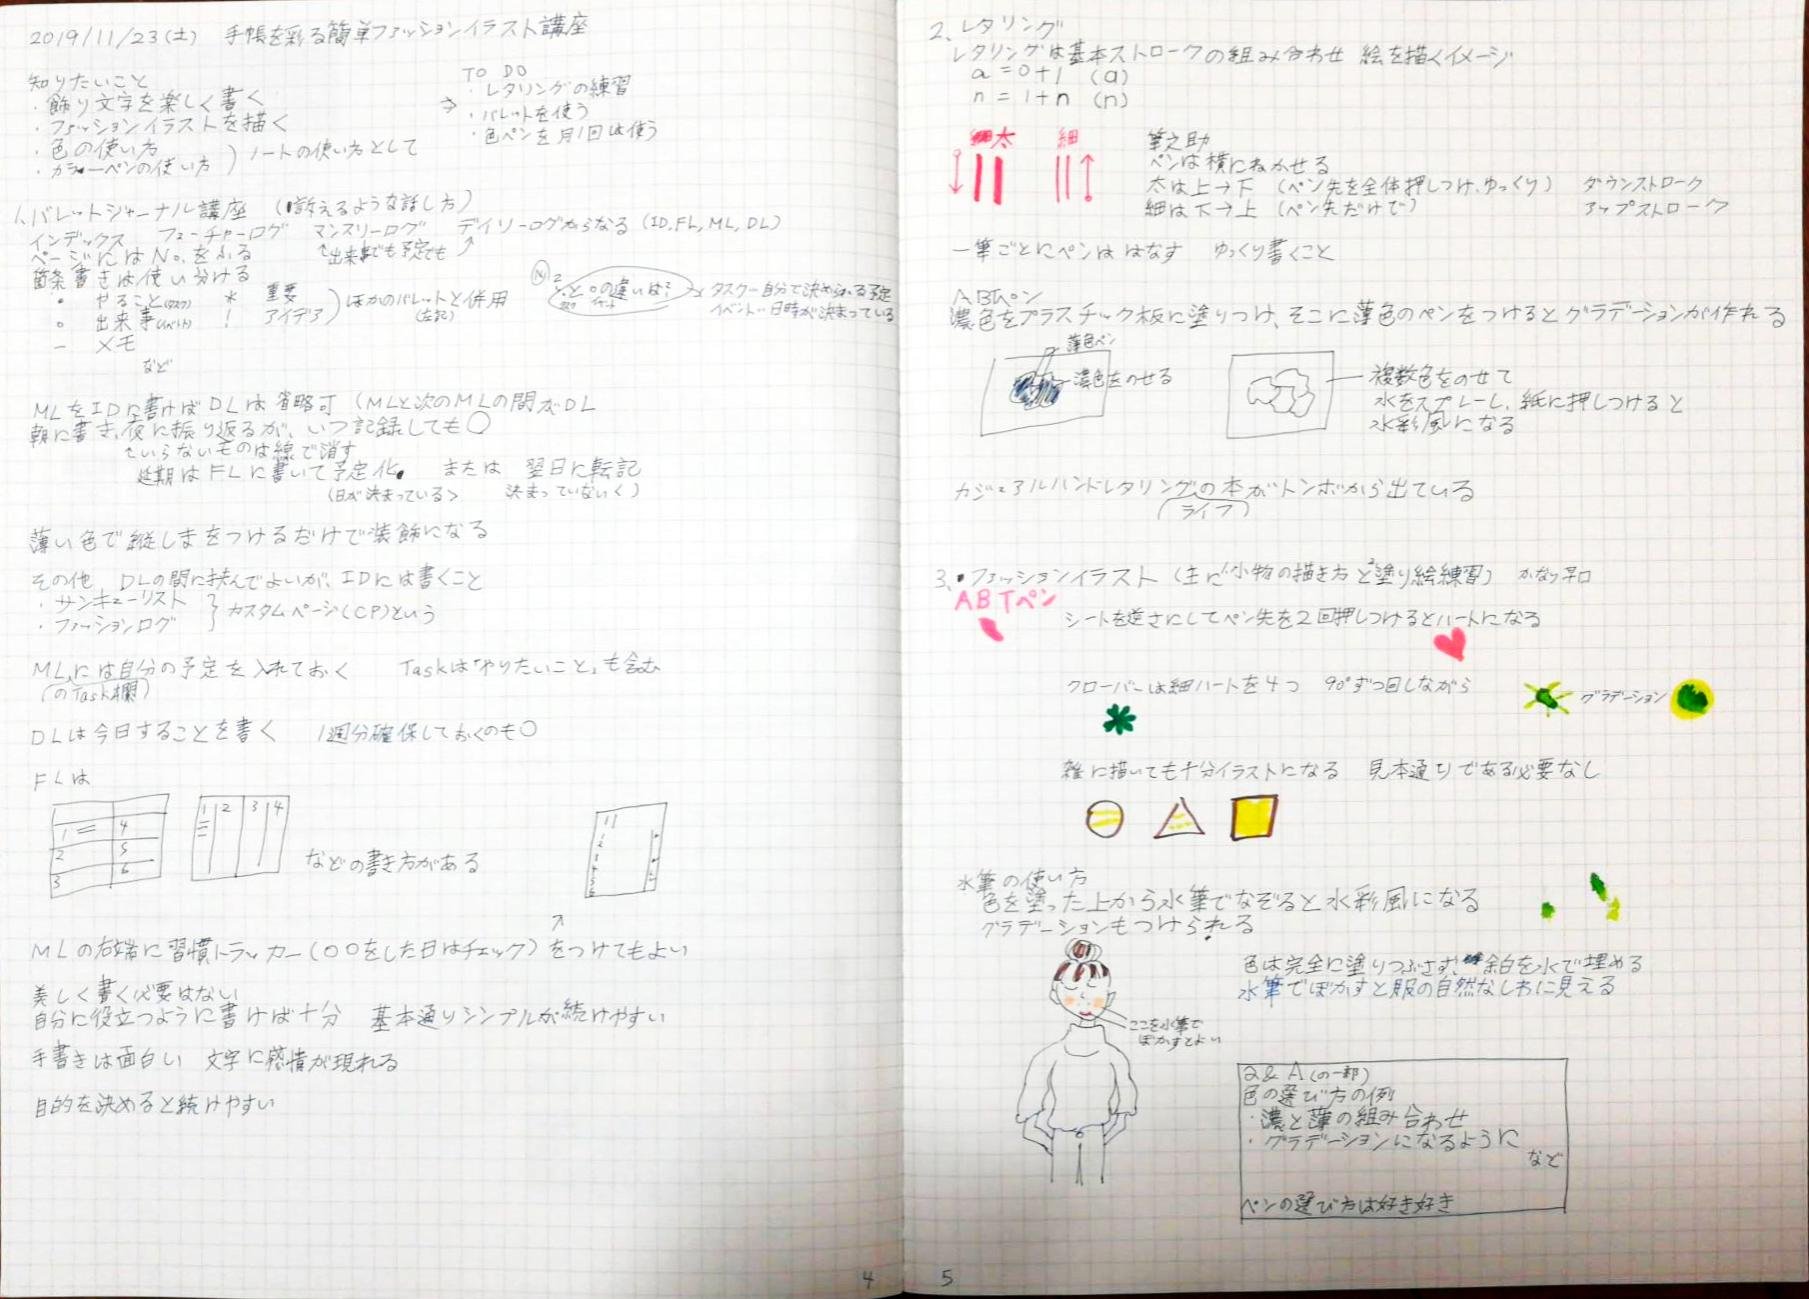 2019/11/23(土) 手帳を彩る簡単ファッションイラスト講座
知りたいこと
・飾り文字を楽しく書く
・ファッションイラストを描く
・色の使い方
・カラーペンの使い方
ノートの使い方として
→
TO DO
・レタリングの練習
・バレットを使う
・色ペンを月1回は使う
1、バレットジャーナル講座 (訴えるような話し方)
インデックス フューチャーログ マンスリーログ デイリーログからなる (ID, FL, ML, DL)
ページにはNo.をふる ↑出来事でも予定でも↑
箇条書きは使い分ける
・ やること(タスク) * 重要
○ 出来事(イベント) ! アイデア
ほかのバレットと併用
(左記)
− メモ
など
・と○の違いは?
タスク イベント
タスク…自分で決められる予定
イベント…日時が決まっている
MLをIDに書けばDLは省略可 (MLと次のMLの間がDL
朝に書き、夜に振り返るが、いつ記録しても○
いらないものは線で消す
延期はFLに書いて予定化 または 翌日に転記
(日が決まっている> 決まっていない<)
薄い色で縦しまをつけるだけで装飾になる
その他、DLの間に挟んでよいが、IDには書くこと
・サンキューリスト
・ファッションログ
カスタムページ(CP)という
MLには自分の予定を入れておく Taskは「やりたいこと」も含む
(のTask欄)
DLは今日することを書く 1週分確保しておくのも○
FLは
1 4
2 5
3 6
1 2 3 4
などの書き方がある
MLの右端に習慣トラッカー(○○をした日はチェック)をつけてもよい
美しく書く必要はない
自分に役立つように書けば十分 基本通りシンプルが続けやすい
手書きは面白い 文字に感情が現れる
目的を決めると続けやすい
4
2、レタリング
レタリングは基本ストロークの組み合わせ 絵を描くイメージ
a = 0+1 (a)
n = 1+n (n)
太 細
筆之助
ペンは横にねかせる
太は上→下 (ペン先を全体押しつけ、ゆっくり) ダウンストローク
細は下→上 (ペン先だけで) アップストローク
一筆ごとにペンははなす ゆっくり書くこと
ABTペン
濃色をプラスチック板に塗りつけ、そこに薄色のペンをつけるとグラデーションが作れる
薄色ペン
濃色をのせる
複数色をのせて
水をスプレーし、紙に押しつけると
水彩風になる
カジュアルハンドレタリングの本がトンボから出ている
(ライフ)
3、ファッションイラスト (主に1小物の描き方と2塗り絵練習) かなり早口
ABTペン
シートを逆さにしてペン先を2回押しつけるとハートになる
クローバーは細ハートを4つ 90°ずつ回しながら
グラデーション
雑に描いても十分イラストになる 見本通りである必要なし
水筆の使い方
色を塗った上から水筆でなぞると水彩風になる
グラデーションもつけられる
色は完全に塗りつぶさず、余白を水で埋める
水筆でぼかすと服の自然なしわに見える
ここを水筆で
ぼかすとよい
Q&A(の一部)
色の選び方の例
・濃と薄の組み合わせ
・グラデーションになるように
など
ペンの選び方は好き好き
5